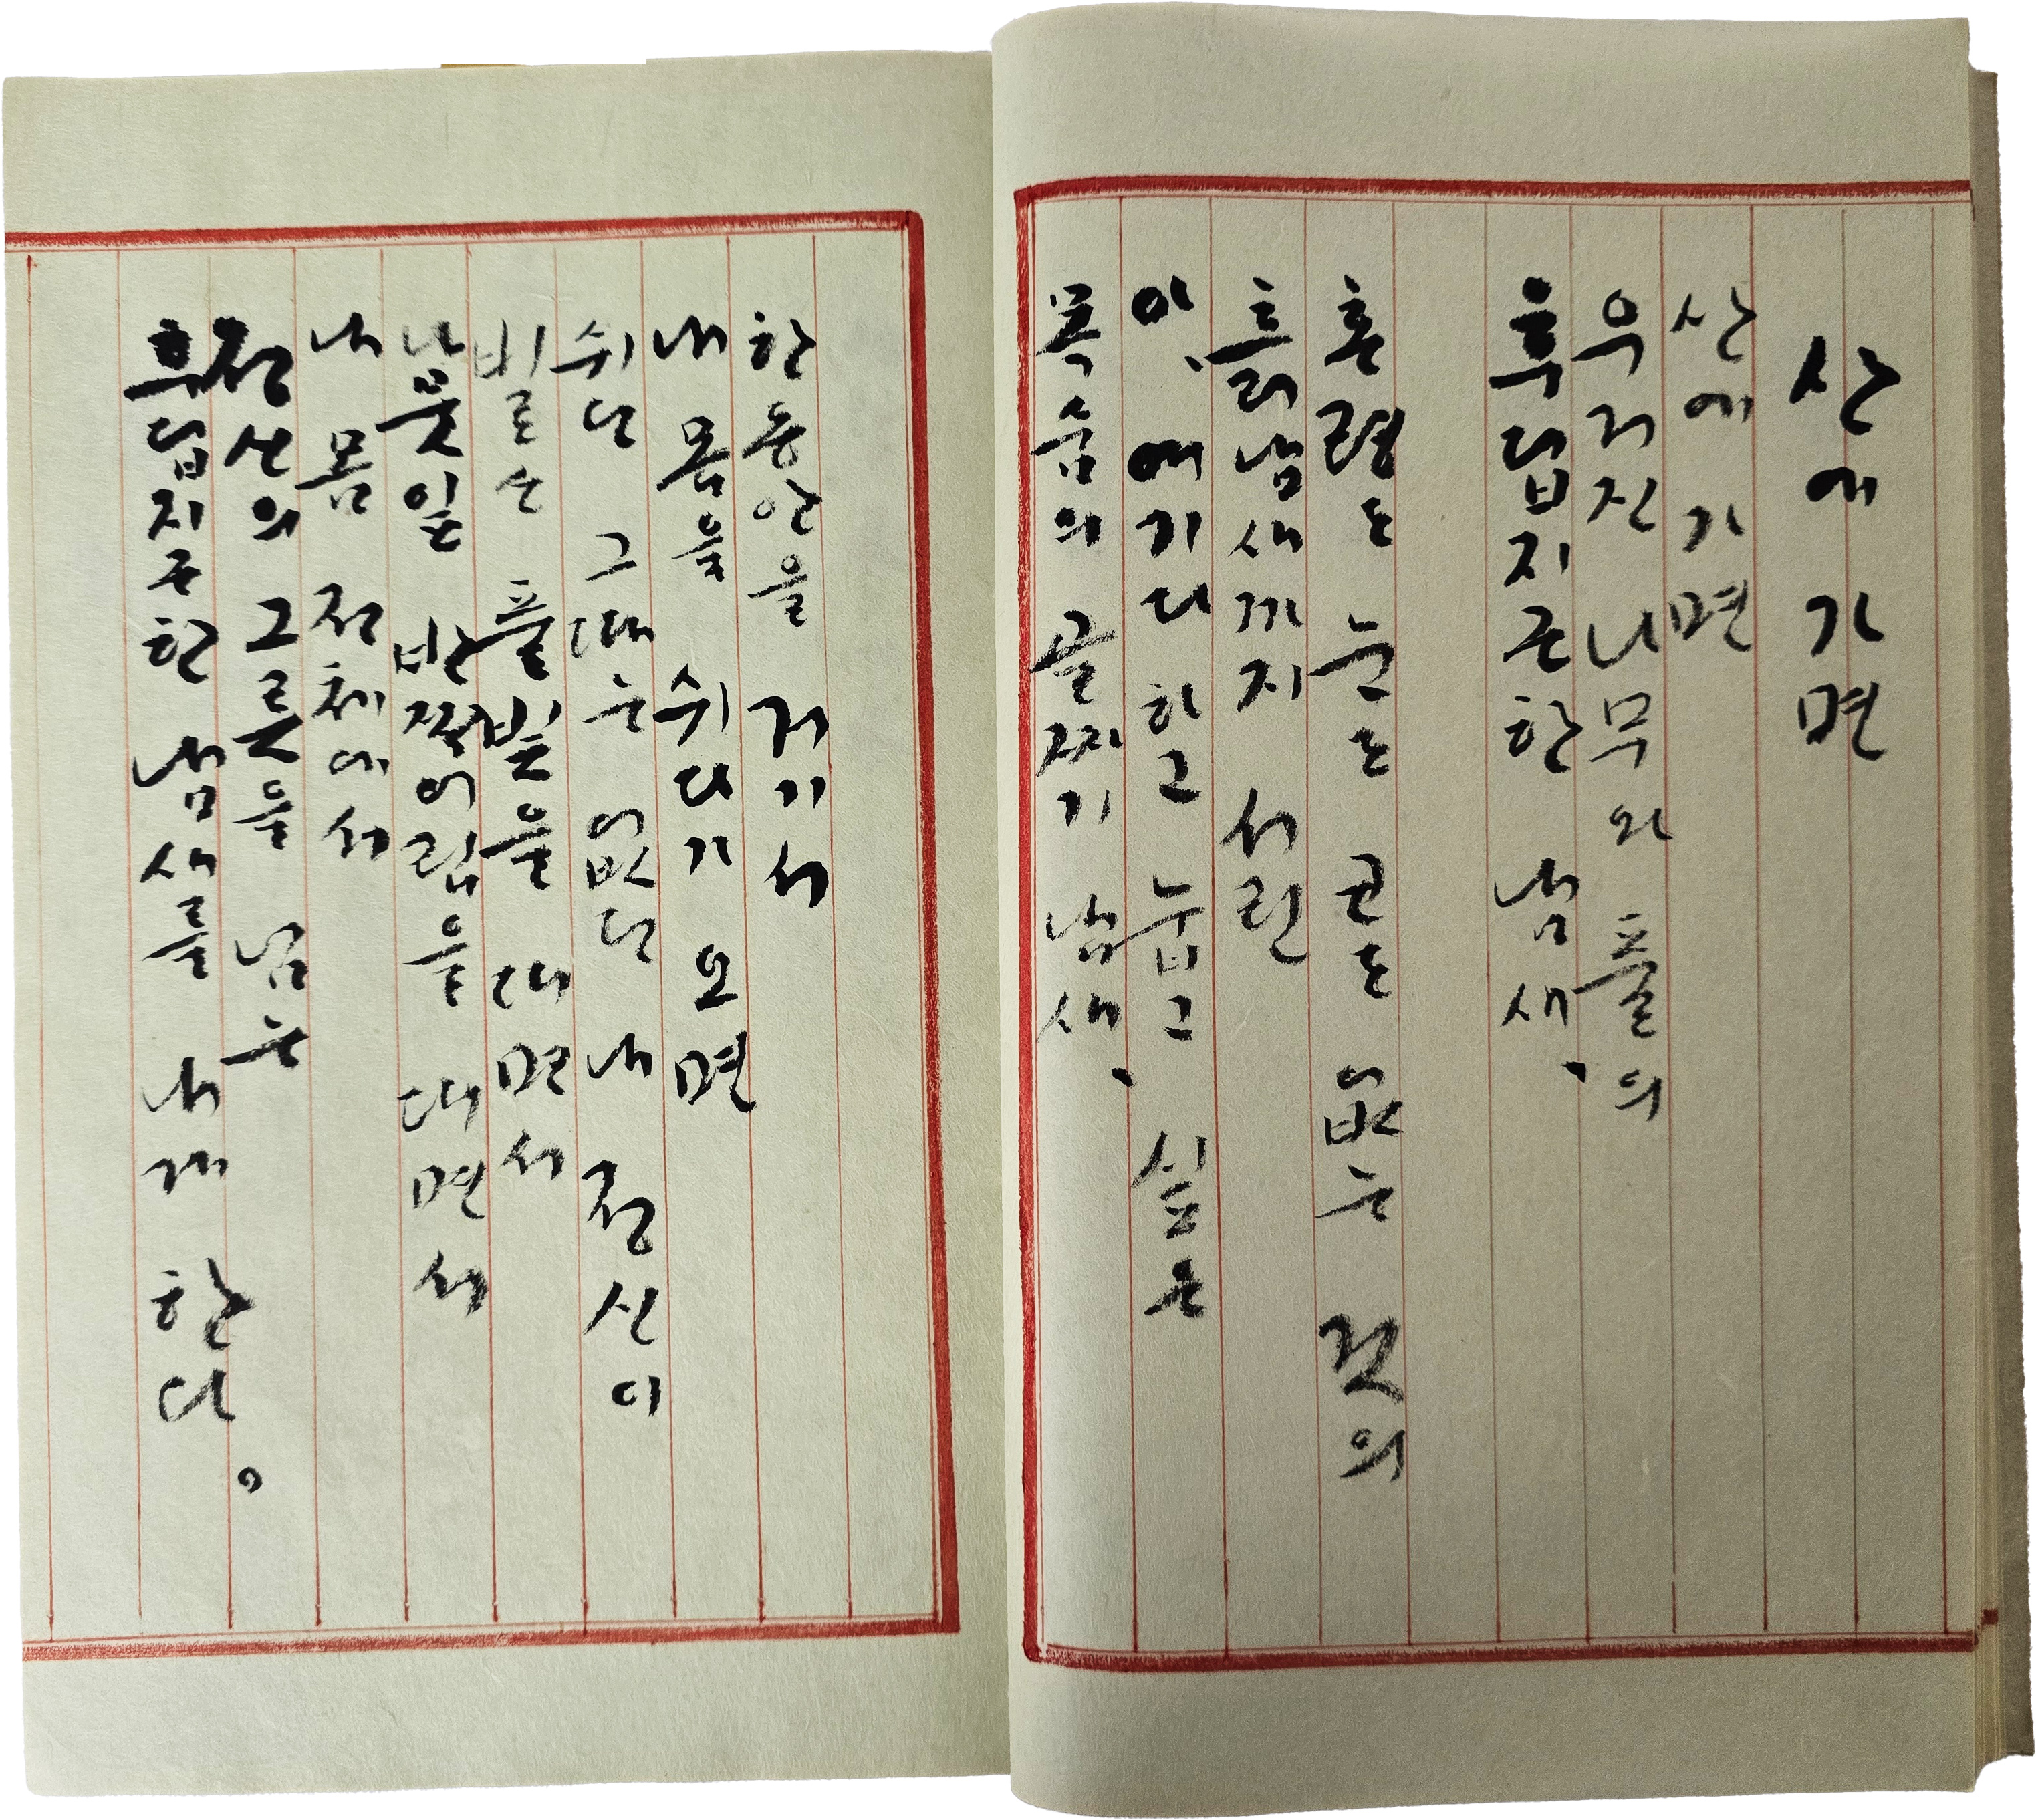 산에 가면
산에 가면
우거진 나무와 풀의
후덥지근한 냄새,
혼령도 눈도 코도 없는 것의
흙냄새까지 서린
아, 여기다 하고 눕고 싶은
목숨의 골짜기 냄새,
한동안을 거기서
내 몸을 쉬다가 오면
쉬던 그때는 없던 내 정신이
비로소 풀빛을 띠면서
나뭇잎 반짝어림을 띠면서
내 몸 전체에서
정신의 그릇을 넘는
후덥지근한 냄새를 내게 한다。